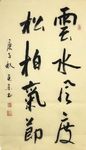 雲水風度
松柏氣節
庚子秋